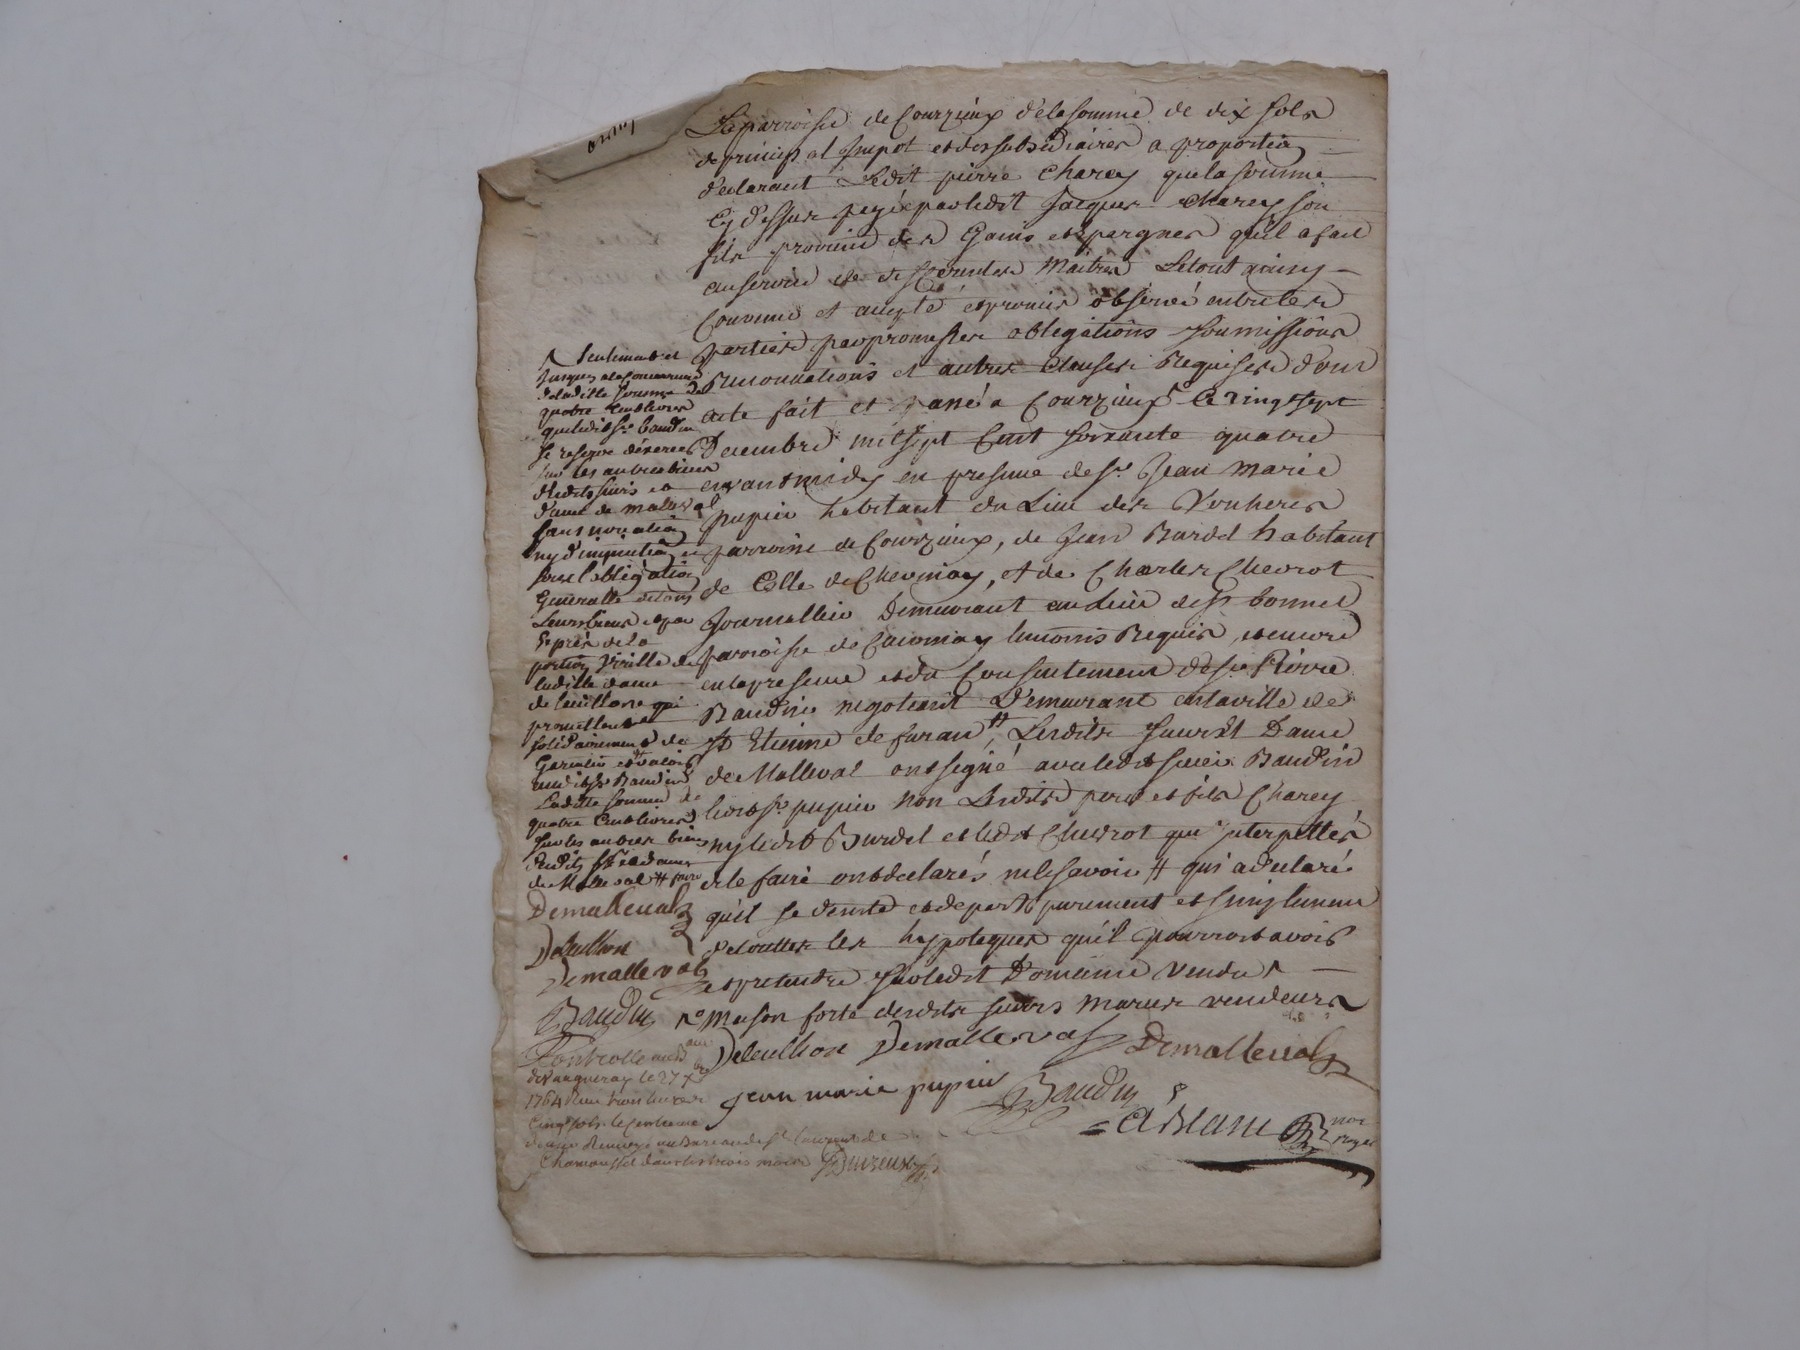 La parroisse de Courzieux de la somme de dix sols
de principal Impot et des subsidiaires a proportion
declarant Ledit pierre Charey que la somme
Cy dessus payé par ledit Jacques Charey son
fils provient des Gains et epargnes qu'il a fait
au service de differentes Maitres Le tout ainsy
Convenu et accepté et promis observé entre les
parties par promesses obligations soumissions
Renonciations et autres Clauses Requises dont
acte fait et passé a Courzieux Le vingt sept
Decembre mil sept Cent soixante quatre
avant midy en presence de sr Jean Marie
pupier habitant du Lieu des Vouheres
parroisse de Courzieux, de Jean Burdel habitant
de Celle de Chevinay, et de Charles Chevrot
Journallier Demeurant au Lieu de st bonnet
parroisse de temoins Requis, et encore
en la presence et du Consentement de sr Pierre
Baudin negotiant Demeurant en la ville de
St Etienne de furan #, Lesdits sieur et Dame
de Malleval ont signé avec ledit sieur Baudin
ledit sr pupier non Lesdits pere et fils Charey
ny ledit Burdel et ledit Chevrot qui Interpellés
de le faire ont declarés ne le savoir # qui a declaré
qu'il se desiste et depart purement et simplement
de toutes les hypoteques qu'il pourroit avoir
et pretendre sur ledit Domaine vendu
Maison forte desdits sieurs Mariés vendeurs
Deleullion Demalleval Demalleval
jean marie pupier Baudin
not royal
seulement et
jusques a la concurrance
de ladite somme de
quatre Cent livres
que ledit sr baudin
se reserve
sur les autres biens
desdits sieurs et
dame de malleval
sans novation
ny diminution
sous l'obligation
Generalle de tous
Leurs biens
portion virille de
ladite dame
de leullion qui
promettent
solidairement de
Garentir et
audit sr Baudin
Ladite somme de
quatre Cent livres
sur les autres biens
desdits sr et dame
de Malleval #
Demalleval
Deleullion
Demalleval
Baudin
Controllé au B au
de vaugneray le 27 xbre
1764 Reçu trois livres
Cinq sols le centieme
au Bureau de st laurent de
Chamousset dans les trois mois